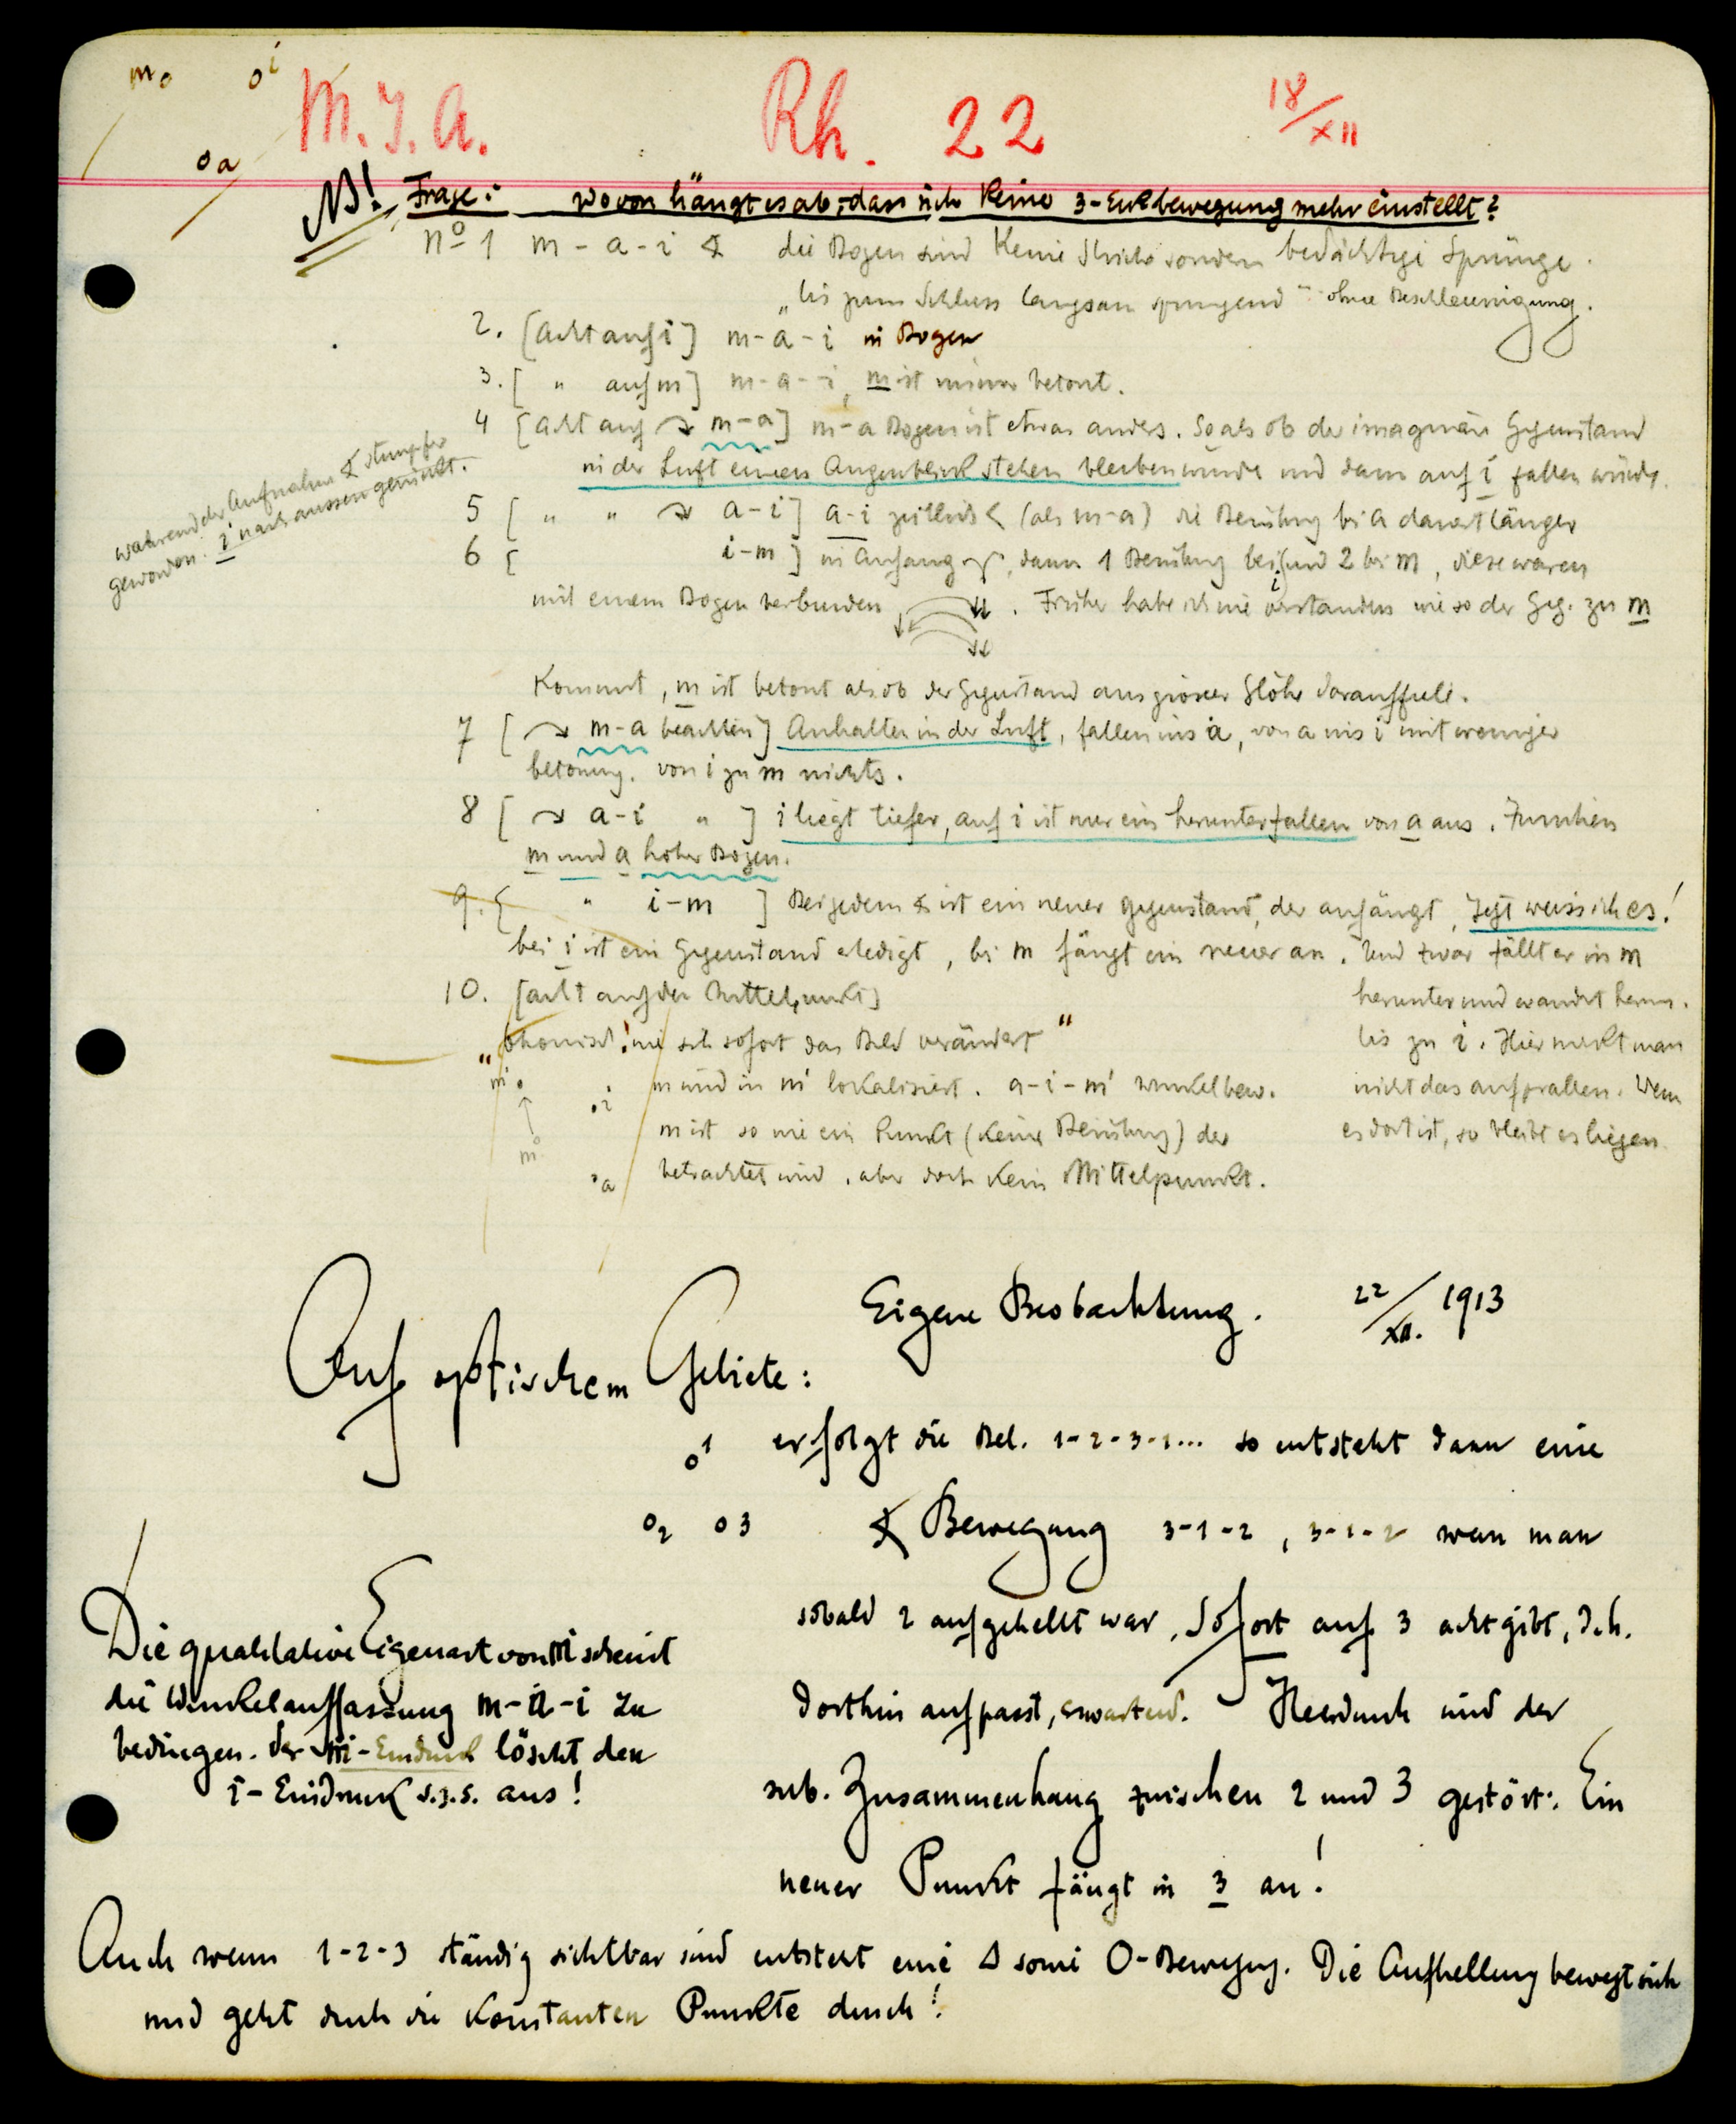 m o   o i
o a
M. J. A.   Rh. 22   18/XII
NB! Frage: wovon hängt es ab, dass sich keine 3-Eckbewegung mehr einstellt?
nº 1 m - a - i ∢ die Bogen sind keine Striche sondern bedächtige Sprünge.
„bis zum Schluss langsam springend" ohne Beschleunigung.
2. [Acht auf i] m - a - i in Bogen
3. [ " auf m] m - a - i, m ist immer betont.
4 [Acht auf ↷ m-a] m-a Bogen ist etwas anders. So als ob der imaginäre Gegenstand
in der Luft einen Augenblick stehen bleiben würde und dann auf i fallen würde.
während der Aufnahme ∢ stumpfer
geworden. i nach aussen gerückt.
5 [ " " ↷ a-i] a-i zeitlich < (als m-a) die Berührung bei a dauert länger
6 [ i-m] im Anfang, dann 1 Berührung bei i und 2 bei m, diese waren
mit einem Bogen verbunden. Früher habe ich nie verstanden wieso der Geg. zu m
kommt, m ist betont als ob der Gegenstand aus grosser Höhe darauffiele.
7 [ ↷ m-a beachten] Anhalten in der Luft, fallen ins a, von a ins i mit weniger
betonung. von i zu m nichts.
8 [ ↷ a-i " ] i liegt tiefer, auf i ist nur ein herunterfallen von a aus. Zwischen
m und a hoher Bogen.
9. [ " i-m ] Bei jedem ∢ ist ein neuer Gegenstand, der anfängt, Jetzt weiss ich es!
bei i ist ein Gegenstand erledigt, bei m fängt ein neuer an. Und zwar fällt er in m
herunter und wandert herum.
bis zu i. Hier merkt man
nicht das aufprallen. Wenn
es dort ist, so bleibt es liegen.
10. [acht auf den Mittelpunkt]
„Komisch! wie sich sofort das Bild verändert"
m' o
o i
m wird in m' lokalisiert. a-i-m' Winkelbew.
m o
m ist so wie ein Punkt (keine Berührung) der
o a
betrachtet wird, aber doch kein Mittelpunkt.
Eigene Beobachtung. 22/XII. 1913
Auf optischem Gebiete:
o 1
erfolgt die Bel. 1-2-3-1... so entsteht dann eine
o 2   o 3
∢ Bewegung 3-1-2, 3-1-2 wenn man
sobald 2 aufgehellt war, sofort auf 3 acht gibt, d.h.
dorthin aufpasst, erwartend. Hierdurch wird der
sub. Zusammenhang zwischen 2 und 3 gestört: Ein
neuer Punkt fängt in 3 an!
Die qualitative Eigenart von m scheint
die Winkelauffassung m-a-i zu
bedingen. der m-Eindruck löscht den
i-Eindruck s.z.s. aus!
Auch wenn 1-2-3 ständig sichtbar sind entsteht eine Δ sowie O-Bewegung. Die Aufhellung bewegt sich
und geht durch die konstanten Punkte durch!